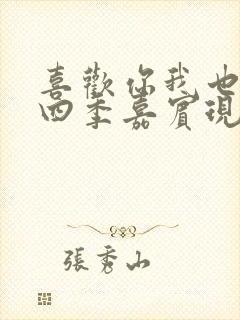 喜歡你我也
四季嘉賓現
張秀山